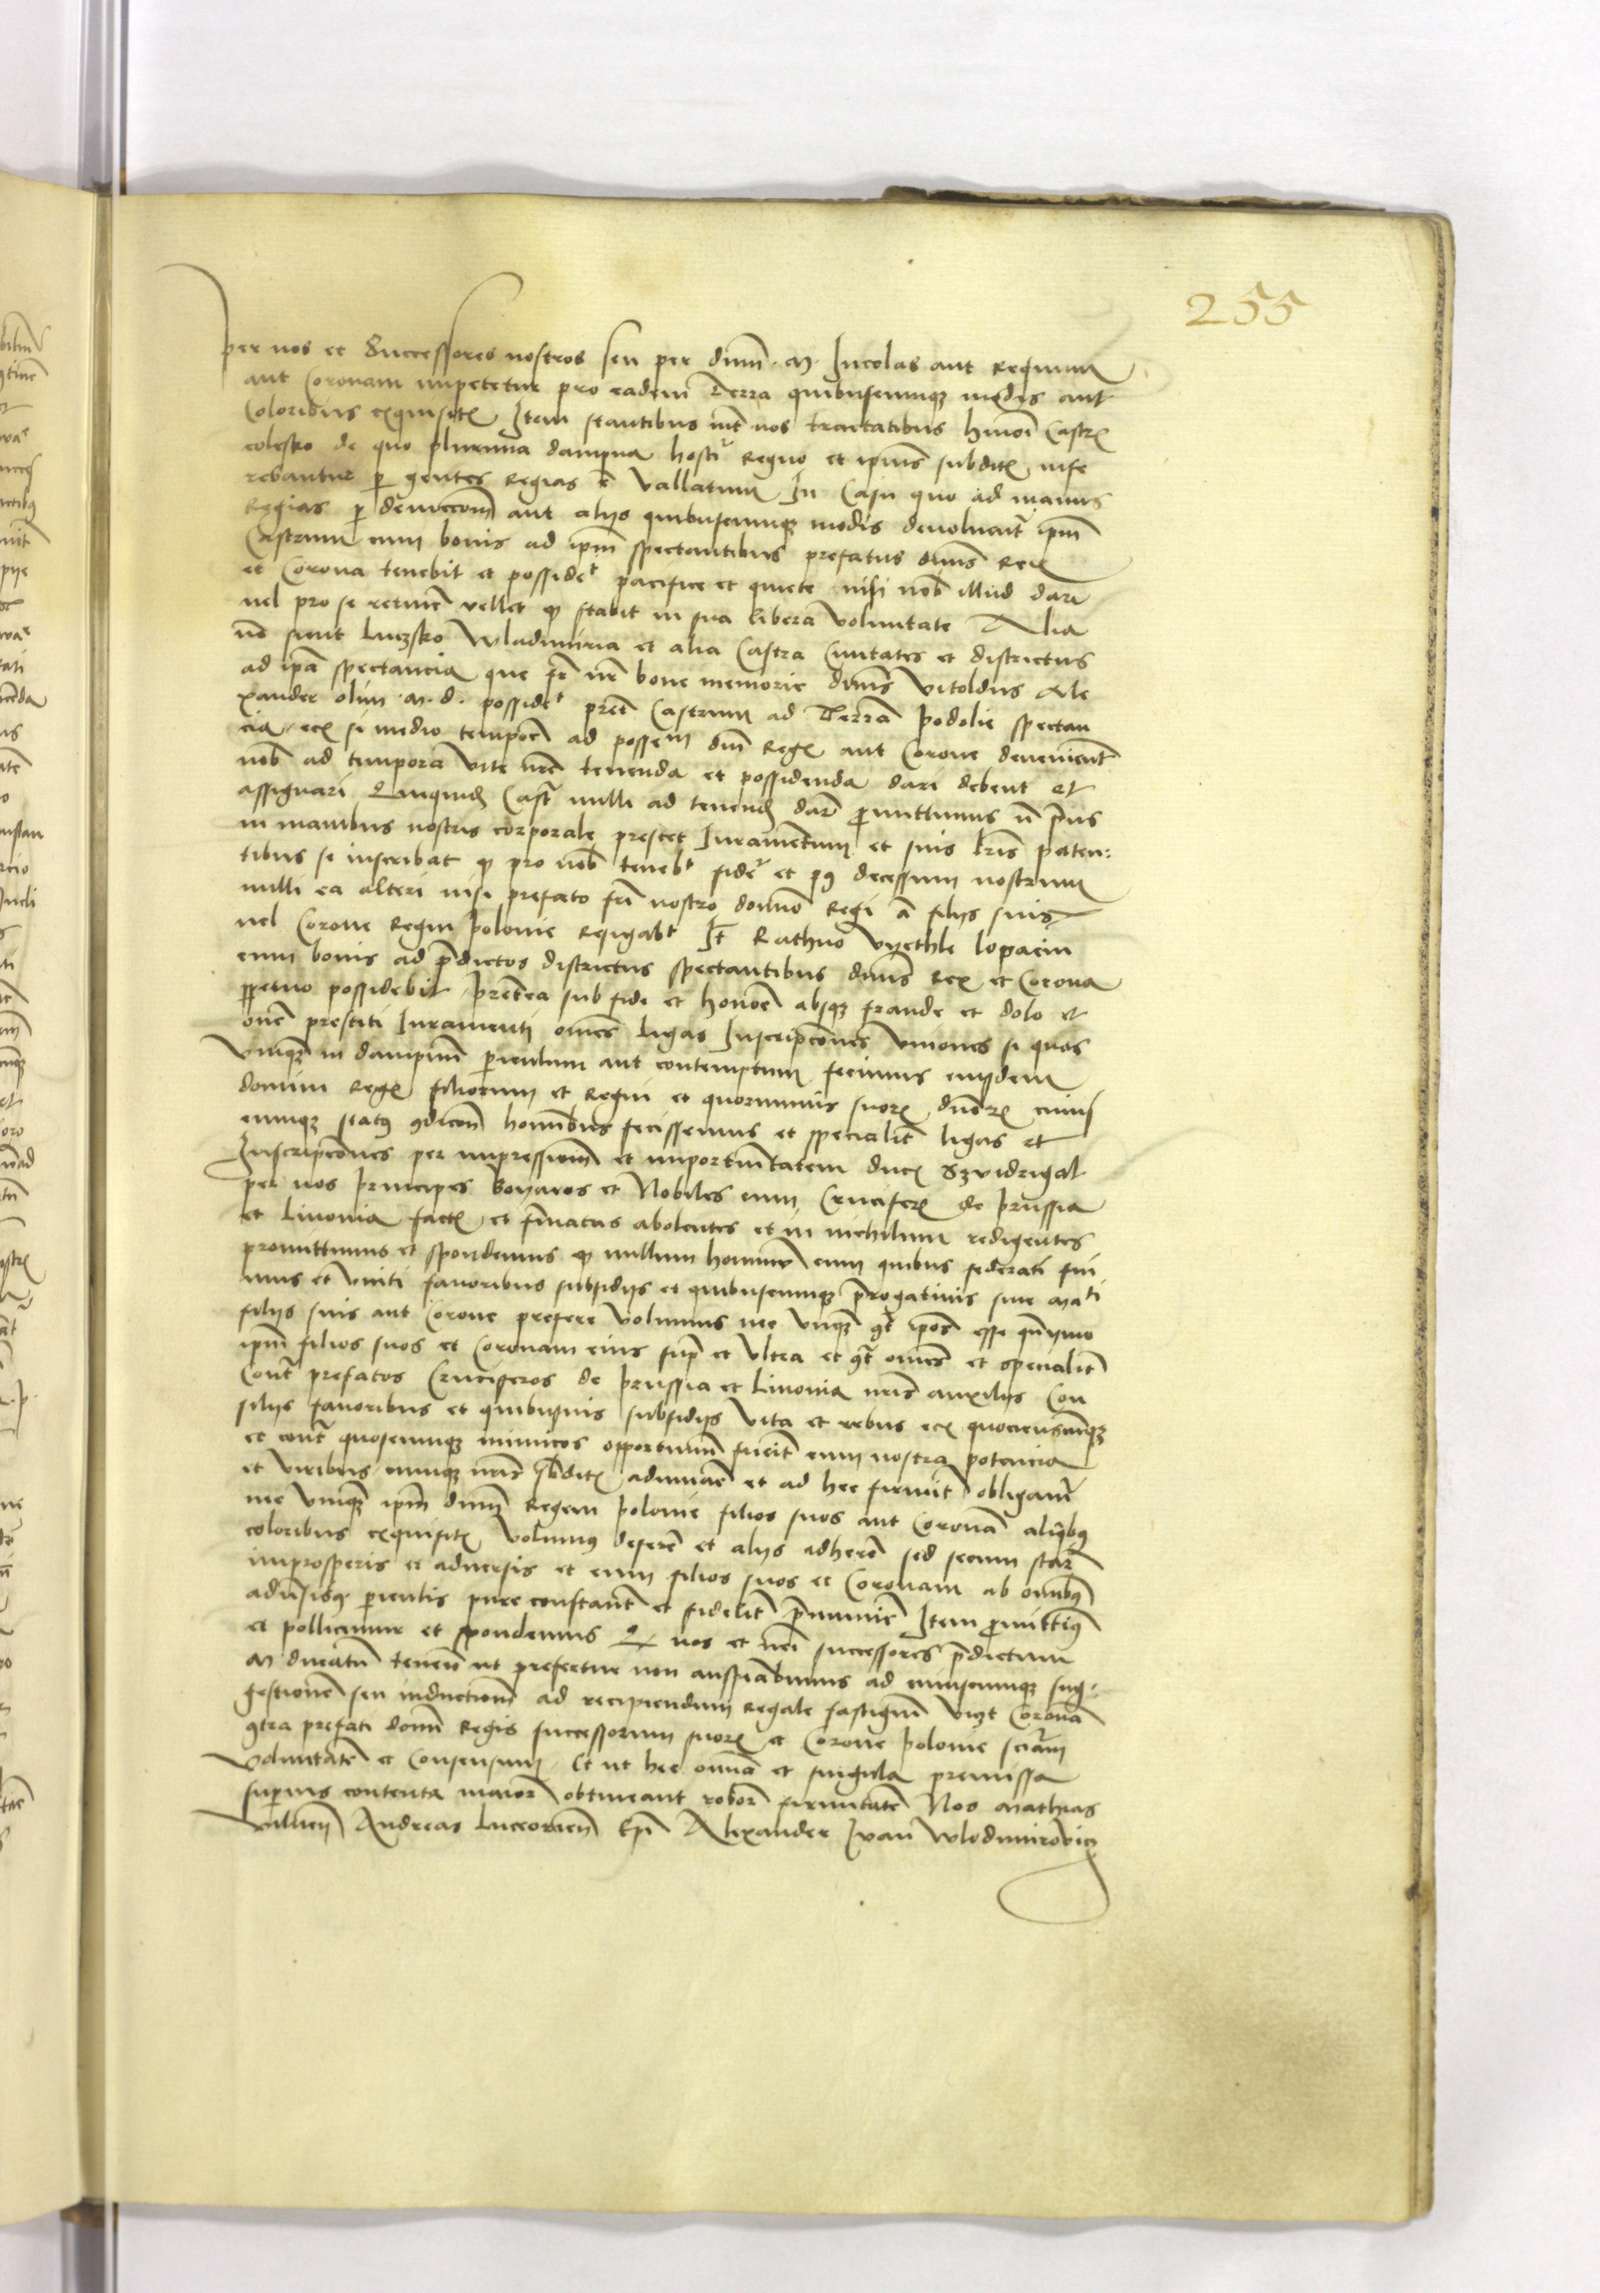 255
per nos et Successores nostros seu per dnm . M . Incolas aut Regnum
aut Coronam impetetur pro eadem Terra quibuscunque modis aut
Coloribus exquisitis Item stantibus int nos tractatibus hmoi Castrum
olesko de quo plurima dampna hostilr Regno et ipius subditis infe
rebantur per gentes Regias est Vallatum In Casu quo ad manus
Regias per deuiccom aut alijs quibuscunque modis deuoluatur ipm
Castrum cum bonis ad ipm spectantibus prefatus dnus Rex
et Corona tenebit et possidebit pacifice et quiete nisi nob illud dare
uel pro se retinere vellet quod stabit in sua libera voluntate Alia
vero sicut Luczsko Wladimiria et alia Castra Ciuitates et districtus
ad ipa spectancia que frater nr bone memorie dnus Vitoldus Ale
xander olim . M . d . possidebat preter Castrum ad Terram podolie spectan
cia etc si medio tempore ad posse dni Regis aut Corone deuenient
nob ad tempora vite nre tenenda et possidenda dari debent et
assignari Quequidem Castra nulli ad tenendum dare promittimus nisi prius
in manibus nostris corporale prestet Iuramentum et suis lris paten:
tibus se inscribat quod pro nob tenebit fidelr et post decessum nostrum
nulli ea alteri nisi prefato fri nostro domino Regi aut filijs suis
uel Corone Regni polonie resignabit Item Rathno Vyethle lopacin
cum bonis ad predictos districtus spectantibus dnus Rex et Corona
perpetuo possidebit preterea sub fide et honore absque fraude et dolo et
onere prestiti Iuramenti omnes ligas Inscripcones Vniones si quas
Vnquam in dampnum periculum aut contemptum fecimus eiusdem
domini Regis filiorum et Regni et quorumuis suorum dnorum cuius
cunque status condicon hominibus fecissemus et specialiter ligas et
Inscripcones per impressionem et importunitatem ducis Szvidrigal
per nos principes boyaros et Nobiles cum Cruciferis de prussia
et Liuonia factas et firmatas abolentes et in nichilum redigentes
promittimus et spondemus quod nullum hominem cum quibus federati fui
mus et Vniti fauoribus subsidijs et quibuscunque prerogatiuis sue Mati
filijs suis aut Corone preferre Volumus nec Vnquam contra ipos esse quinymo
ipm filios suos et Coronam eius supra et Vltra et contra omnes et specialiter
Contra prefatos Cruciferos de prussia et Liuonia nris auxilijs Con
silijs fauoribus et quibusuis subsidijs Vita et rebus etc quociensunque
et contra quoscunque inimicos opportunum fuerit cum nostra potencia
et viribus cunque nris subditis adiuuare et ad hec firmiter obligamur
nec Vnquam ipm dnum Regem polonie filios suos aut Coronam aliquibus
coloribus exquisitis volumus deserere et alijs adherere sed secum stare
in prosperis et aduersis et eum filios suos et Coronam ab omnibus
aduersis periculis pure constanter et fideliter premunire Item promittimus
et pollicemur et spondemus Quod nos et nri successores predictum
M ducatum tenentes ut prefertur non aspirabimus ad cuiuscunque sug:
gestionem seu inductionem ad recipiendum Regale fastigium vidz Coronam
contra prefati domini Regis successorum suorum et Corone polonie scitum
Voluntatem et Consensum . Et ut hec omnia et singula premissa
superius contenta maioris obtineant roboris firmitatem Nos Mathias
Vilnensis Andreas Luceoriensis Epi Alexander Iuan Wlodimirovicz